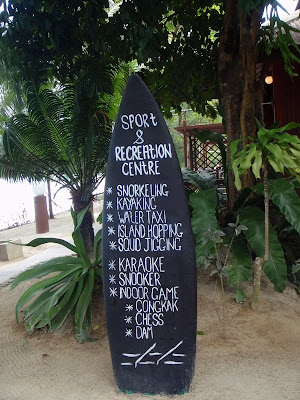 SPORT
&
RECREATION
CENTRE
* SNORKELING
* KAYAKING
* WATER TAXI
* ISLAND HOPPING
* SQUID JIGGING
* KARAOKE
* SNOOKER
* INDOOR GAME
* CONGKAK
* CHESS
* DAM